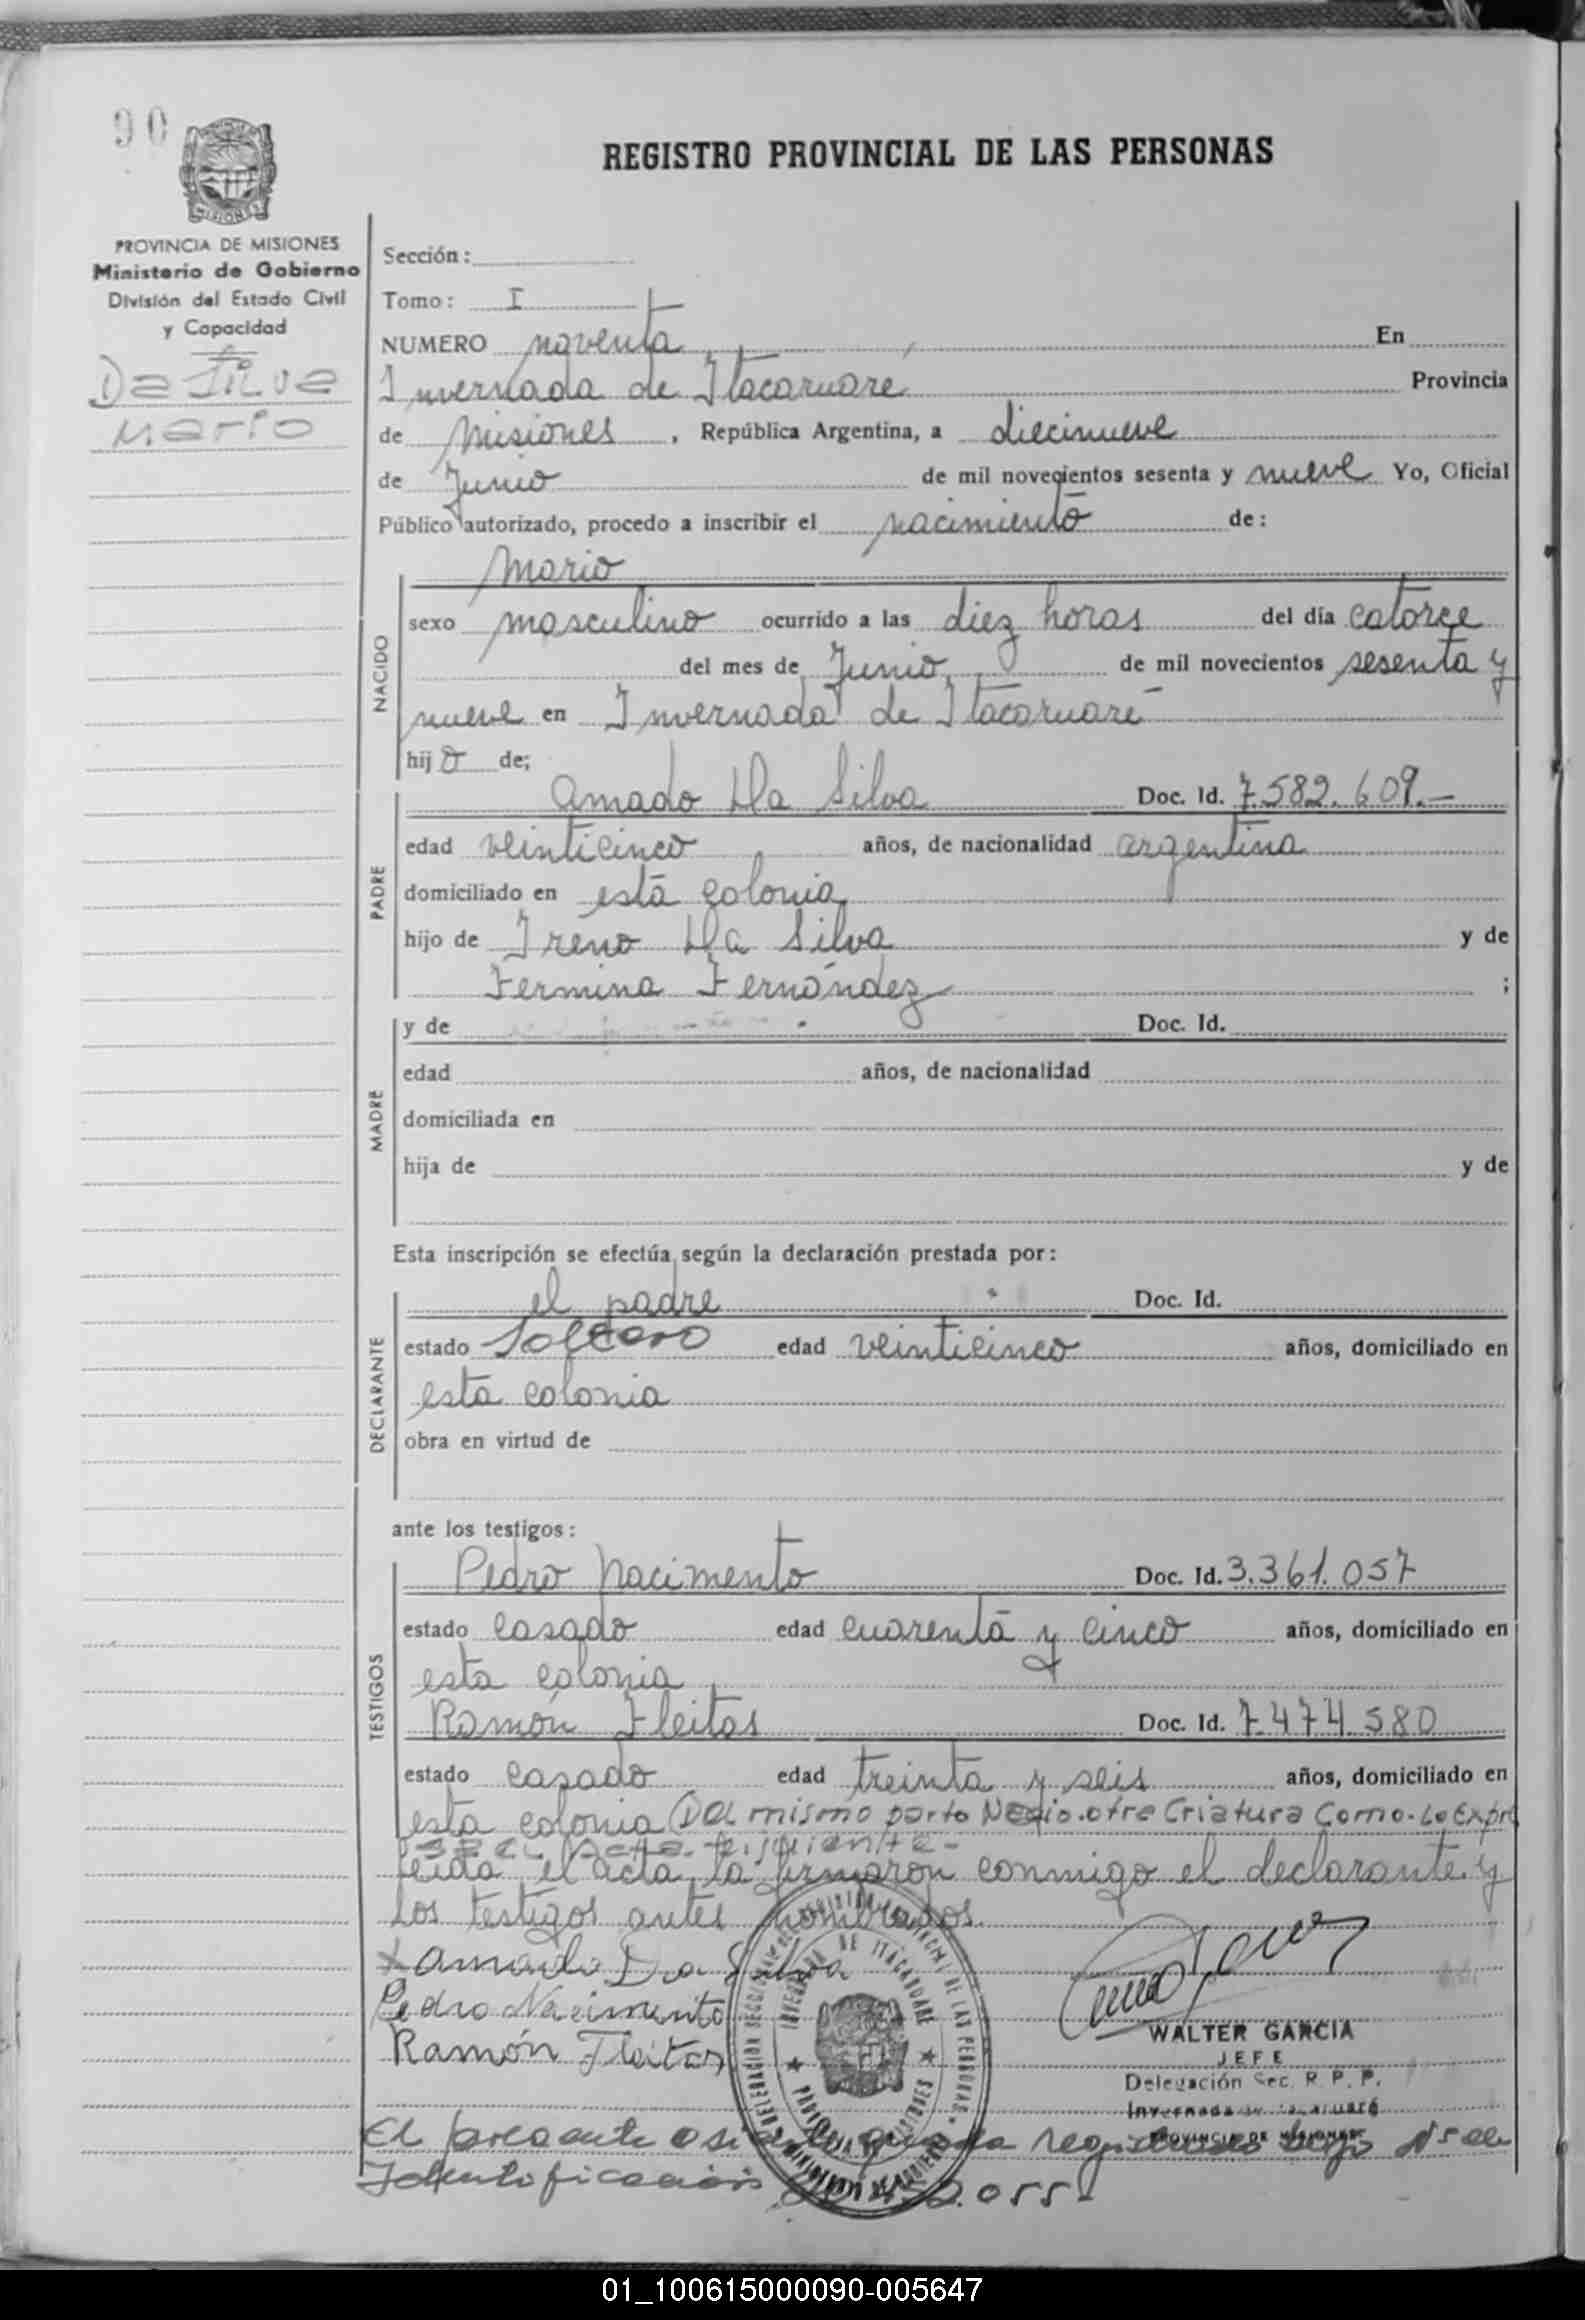 90
MISIONES
PROVINCIA DE MISIONES
Ministerio de Gobierno
División del Estado Civil
y Capacidad
Da Silva
Mario
REGISTRO PROVINCIAL DE LAS PERSONAS
Sección:
Tomo: I
NUMERO noventa En
Invernada de Itacaruare Provincia
de Misiones, República Argentina, a diecinueve
de Junio de mil novecientos sesenta y nueve Yo, Oficial
Público autorizado, procedo a inscribir el nacimiento de:
Mario
NACIDO
sexo masculino ocurrido a las diez horas del día catorce
del mes de Junio de mil novecientos sesenta y
nueve en Invernada de Itacaruaré
hijo de;
PADRE
Amado Da Silva Doc. Id. 7.582.609.-
edad veinticinco años, de nacionalidad argentina
domiciliado en esta colonia
hijo de Ireno Da Silva y de
Fermina Fernández ;
MADRE
y de Doc. Id.
edad años, de nacionalidad
domiciliada en
hija de y de
Esta inscripción se efectúa según la declaración prestada por:
DECLARANTE
el padre Doc. Id.
estado Soltero edad veinticinco años, domiciliado en
esta colonia
obra en virtud de
ante los testigos:
TESTIGOS
Pedro Nacimento Doc. Id. 3.361.057
estado casado edad cuarenta y cinco años, domiciliado en
esta colonia
Ramón Fleitas Doc. Id. 7.474.580
estado casado edad treinta y seis años, domiciliado en
esta colonia Del mismo parto Nacio otra Criatura Como Lo Expre
sa el Acta siguiente-
leida el acta la firmaron conmigo el declarante y
los testigos antes nombrados.
Amado Da Silva
Pedro Nacimento
Ramón Fleitas
INVERNADA DE ITACARUARE
WALTER GARCIA
JEFE
Delegación Sec. R. P. P.
Invernada de Itacaruaré
PROVINCIA DE MISIONES
El presente queda registrado bajo Nº de
Identificación .055-
01_100615000090-005647